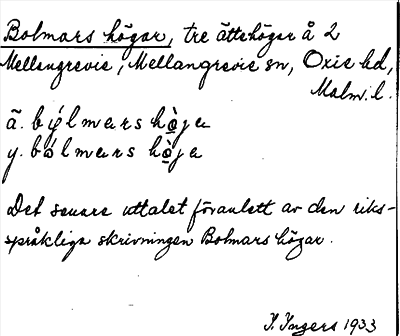 Bolmars högar, tre ättehögar å 2
Mellangrevie, Mellangrevie sn, Oxie hd,
Malm. l.
ã. bý̹lmars hö̀ja
y. bólmars hö̀ja
Det senare uttalet föranlett av den riks-
språkliga skrivningen Bolmars högar.
I. Ingers 1933